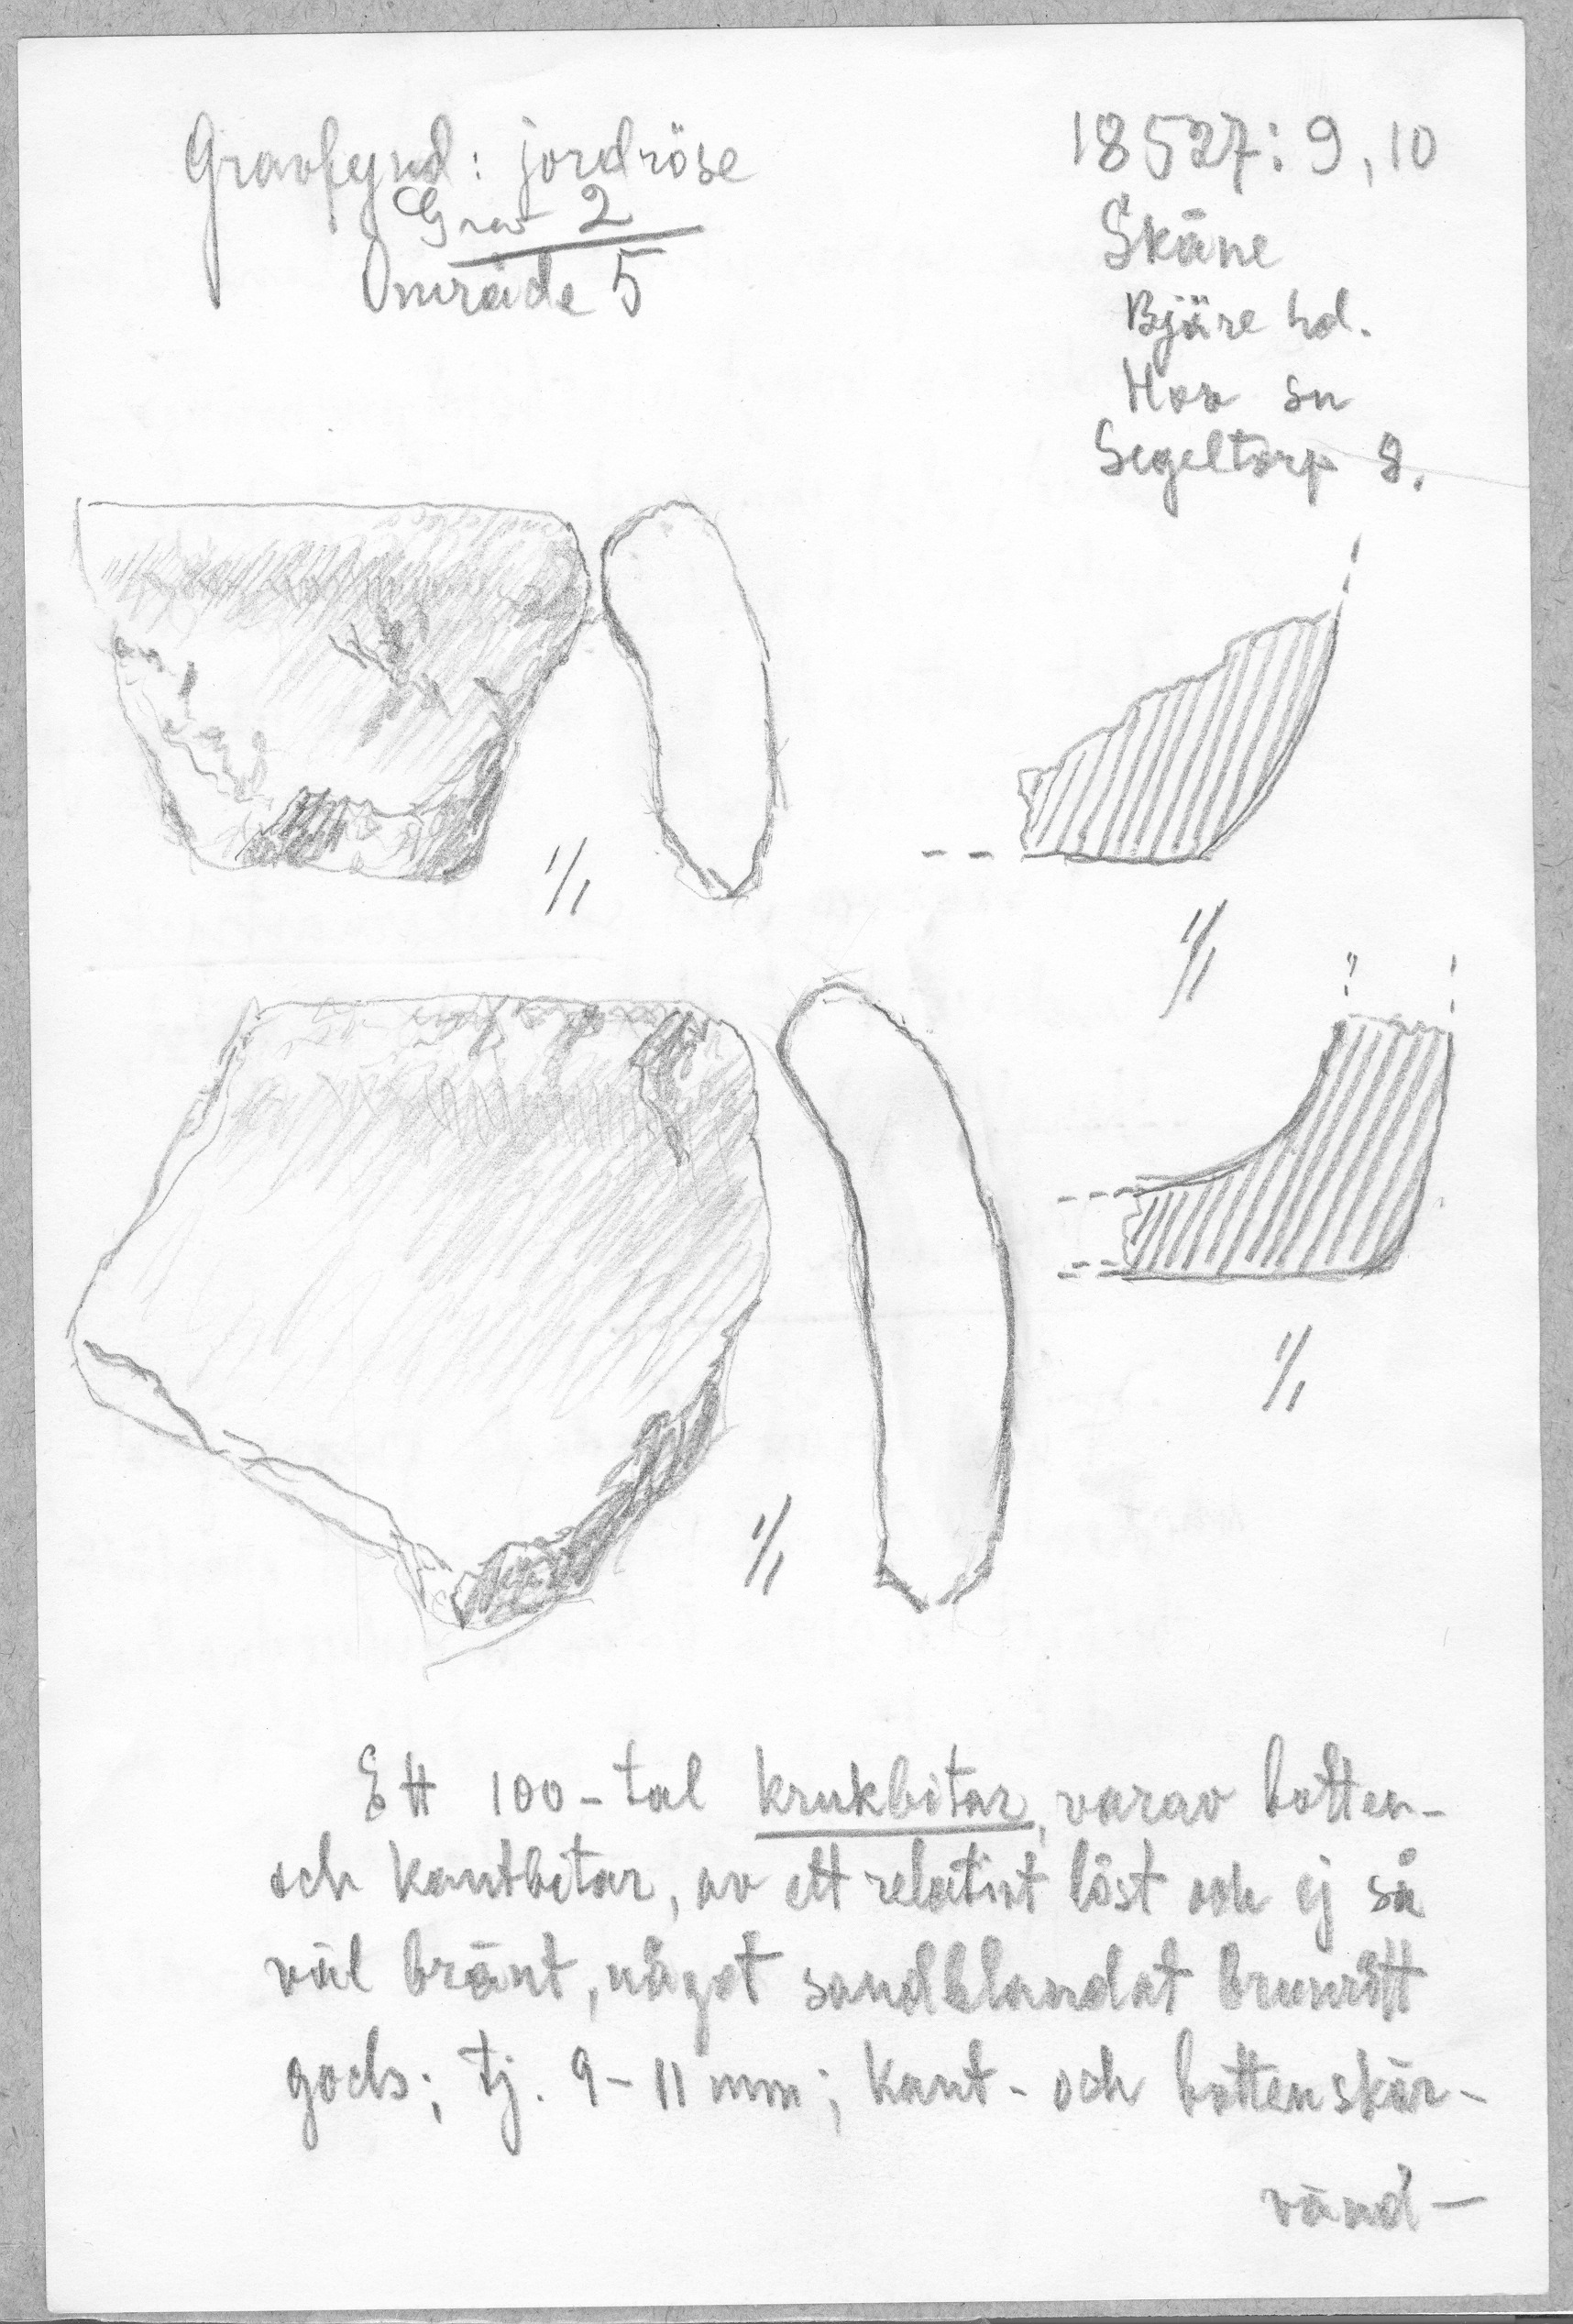 Gravfynd: jordröse
Grav 2
Område 5
18527: 9, 10
Skåne
Bjäre hd.
Hov sn
Segeltorp 8.
1/1
1/1
1/1
1/1
Ett 100-tal krukbitar, varav botten-
och kantbitar, av ett relativt löst och ej så
väl bränt, något sandblandat brunrött
gods; tj. 9-11 mm; kant- och bottenskär-
vänd-